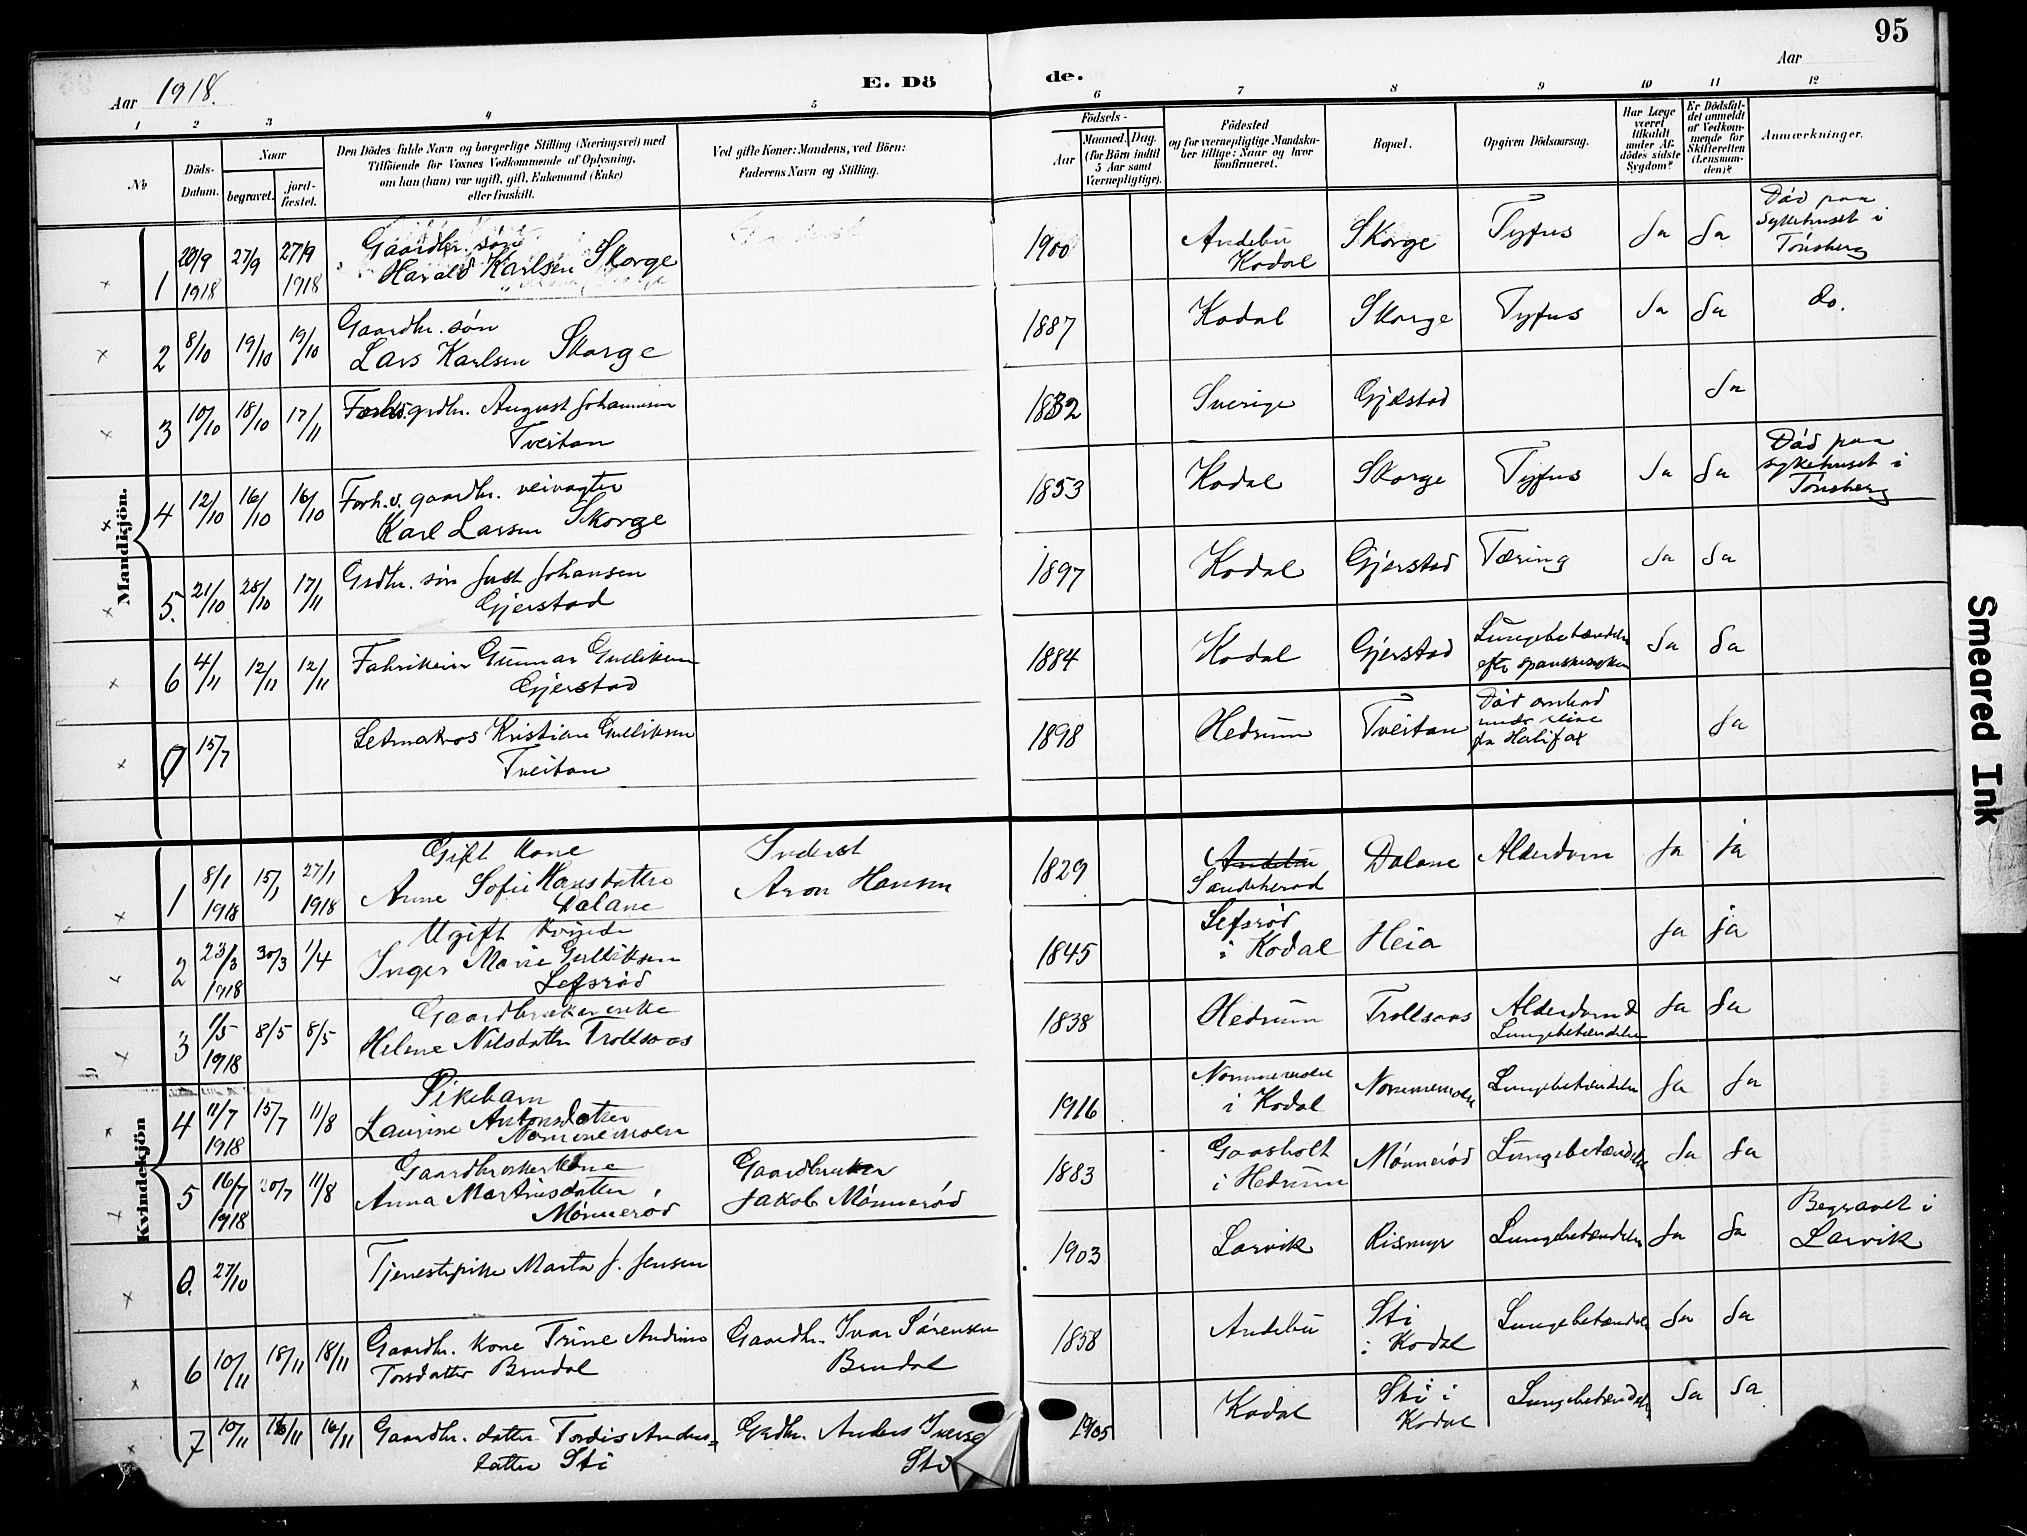 95
Aar 1918.
E. Dö de.
Aar
1 2 3 4 5 6 7 8 9 10 11 12
No
Döds-Datum.
Naar
begravet.
jord-fæstet.
Den Dödes fulde Navn og borgerlige Stilling (Næringsvei) med
Tilföiende for Voxnes Vedkommende af Oplysning,
om han (hun) var ugift, gift, Enkemand (Enke)
eller fraskilt.
Ved gifte Koner: Mandens, ved Börn:
Faderens Navn og Stilling.
Födsels-
Aar
Maaned. Dag.
(for Börn indtil
5 Aar samt
Værnepligtige).
Födested
og for værnepligtige Mandska-
ber tillige: Naar og hvor
konfirmeret.
Bopæl.
Opgiven Dödsaarsag.
Har Læge
været
tilkaldt
under Af-
dödes sidste
Sygdom?
Er Dödsfal-
det anmeldt
af Vedkom-
mende for
Skifteretten
(Lensman-
den)?
Anmærkninger.
Mandkjön.
1 20/9 1918 27/9 27/9 1918 Gaardbr. søn Harald Karlsen Skorge 1900 Andebu Kodal Skorge Tyfus Ja Ja Død paa sykehuset i Tönsberg
2 8/10 19/10 19/10 Gaardbr. søn Lars Karlsen Skorge 1887 Kodal Skorge Tyfus Ja Ja do.
3 10/10 18/10 17/11 grdbr. August Johannesen Tveitan 1832 Sverige Gjelstad Ja
4 12/10 16/10 16/10 Forh.v. gaardbr. veivogter Karl Larsen Skorge 1853 Kodal Skorge Tyfus Ja Ja Död paa sykehuset i Tönsberg
5. 21/10 28/10 17/11 Grdbr. søn Just Johansen Gjerstad 1897 Kodal Gjerstad Tæring Ja Ja
6 4/11 12/11 12/11 Fabrikeier Gunnar Gulliksen Gjerstad 1884 Kodal Gjerstad Lungebetændelse efter spanskesyken Ja Ja
0 15/7 Letmatros Kristian Gulliksen Tveitan 1898 Hedrum Tveitan Död ombord under reise fra Halifax Ja
Kvindekjön
1 8/1 1918 15/1 27/1 1918 Gift kone Anne Sofie Hansdatter Dalane Inderst Aron Hansen 1829 Andebu Sandeherad Dalane Alderdom Ja ja
2 23/3 1918 30/3 1/4 Ugift kvinde Inger Marie Gulliksen Lefsrød 1845 Lefsrød i Kodal Heia Ja ja
3 1/5 1918 8/5 8/5 Gaardbrukerenke Helene Nilsdatter Trollsaas 1838 Hedrum Trollsaas Alderdom & Lungebetændelse Ja Ja
4 11/7 1918 15/7 11/8 Pikebarn Laurine Antonsdatter Nommemoen 1916 Nommemoen i Kodal Nommemoen Lungebetændelse Ja Ja
5 16/7 1918 20/7 11/8 Gaardbrukerkone Anna Martinsdatter Mønnerød Gaardbruker Jakob Mønnerød 1883 Gaasholt i Hedrum Mønnerød Lungebetændelse Ja Ja
0. 27/10 Tjenestepike Marta J. Jensen 1903 Larvik Rismyr Lungebetændelse Ja Ja Begravet i Larvik
6 10/11 18/11 18/11 Gaardbr. kone Trine Andrine Torsdatter Brudal Gaardbr. Ivar Sørensen Brudal 1858 Andebu Sti i Kodal Lungebetændelse Ja Ja
7 10/11 16/11 16/11 Gaardbr. datter Tordis Anders-
datter Sti Grdbr. Anders Iverse Sti 1905 Kodal Sti i Kodal Lungebetændelse Ja Ja
Smeared Ink